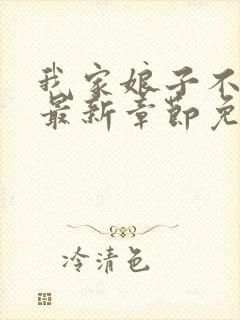 我家娘子不
最新章節免
冷清色